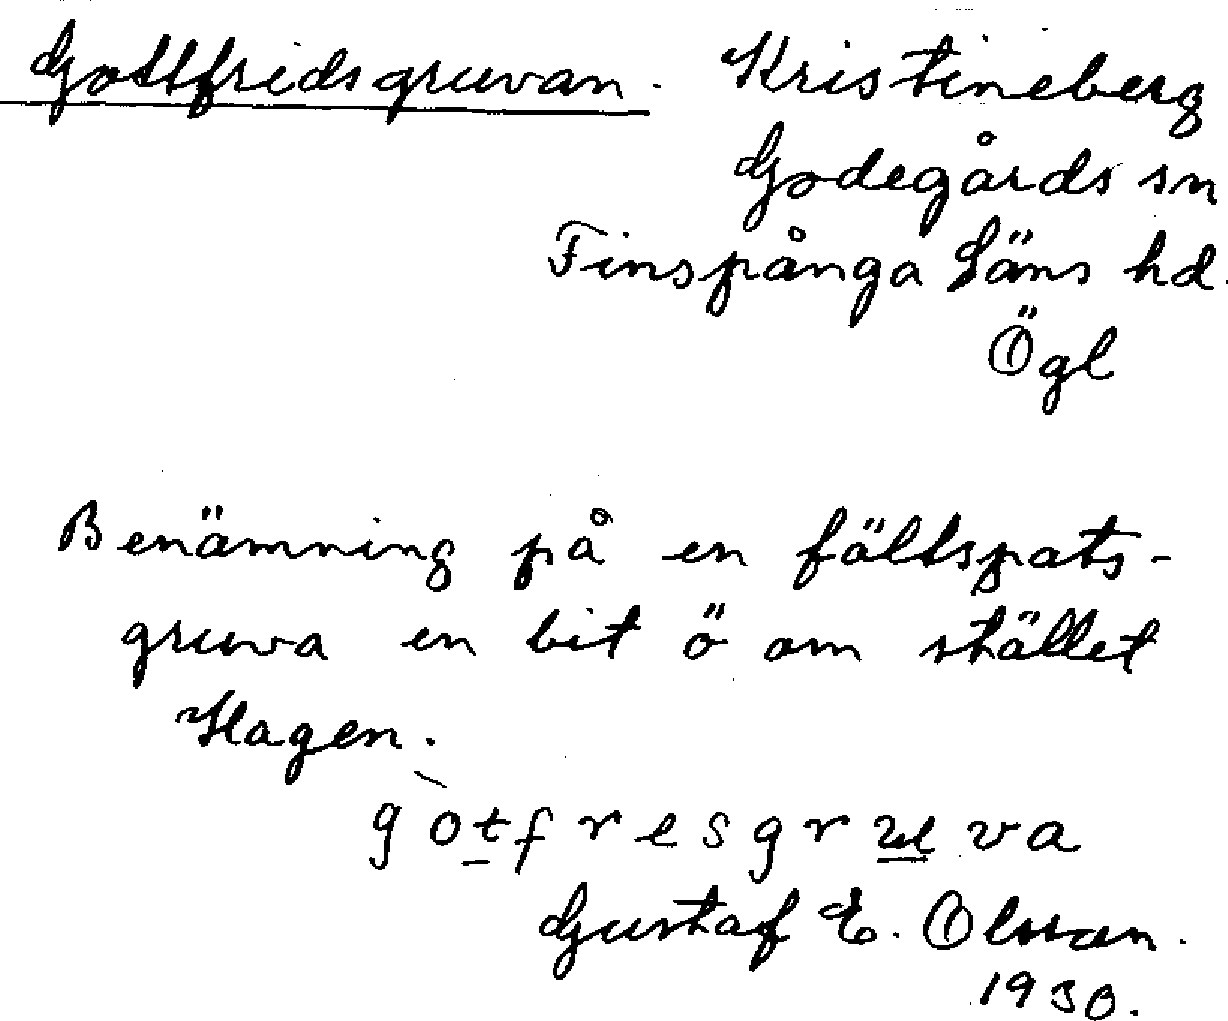 Gottfridsgruvan. Kristineberg
Godegårds sn
Finspånga Läns hd.
Ögl
Benämning på en fältspats-
gruva en bit ö om stället
Hagen.
gòt̲fresgru̲va
Gustaf E. Olsson.
1930.